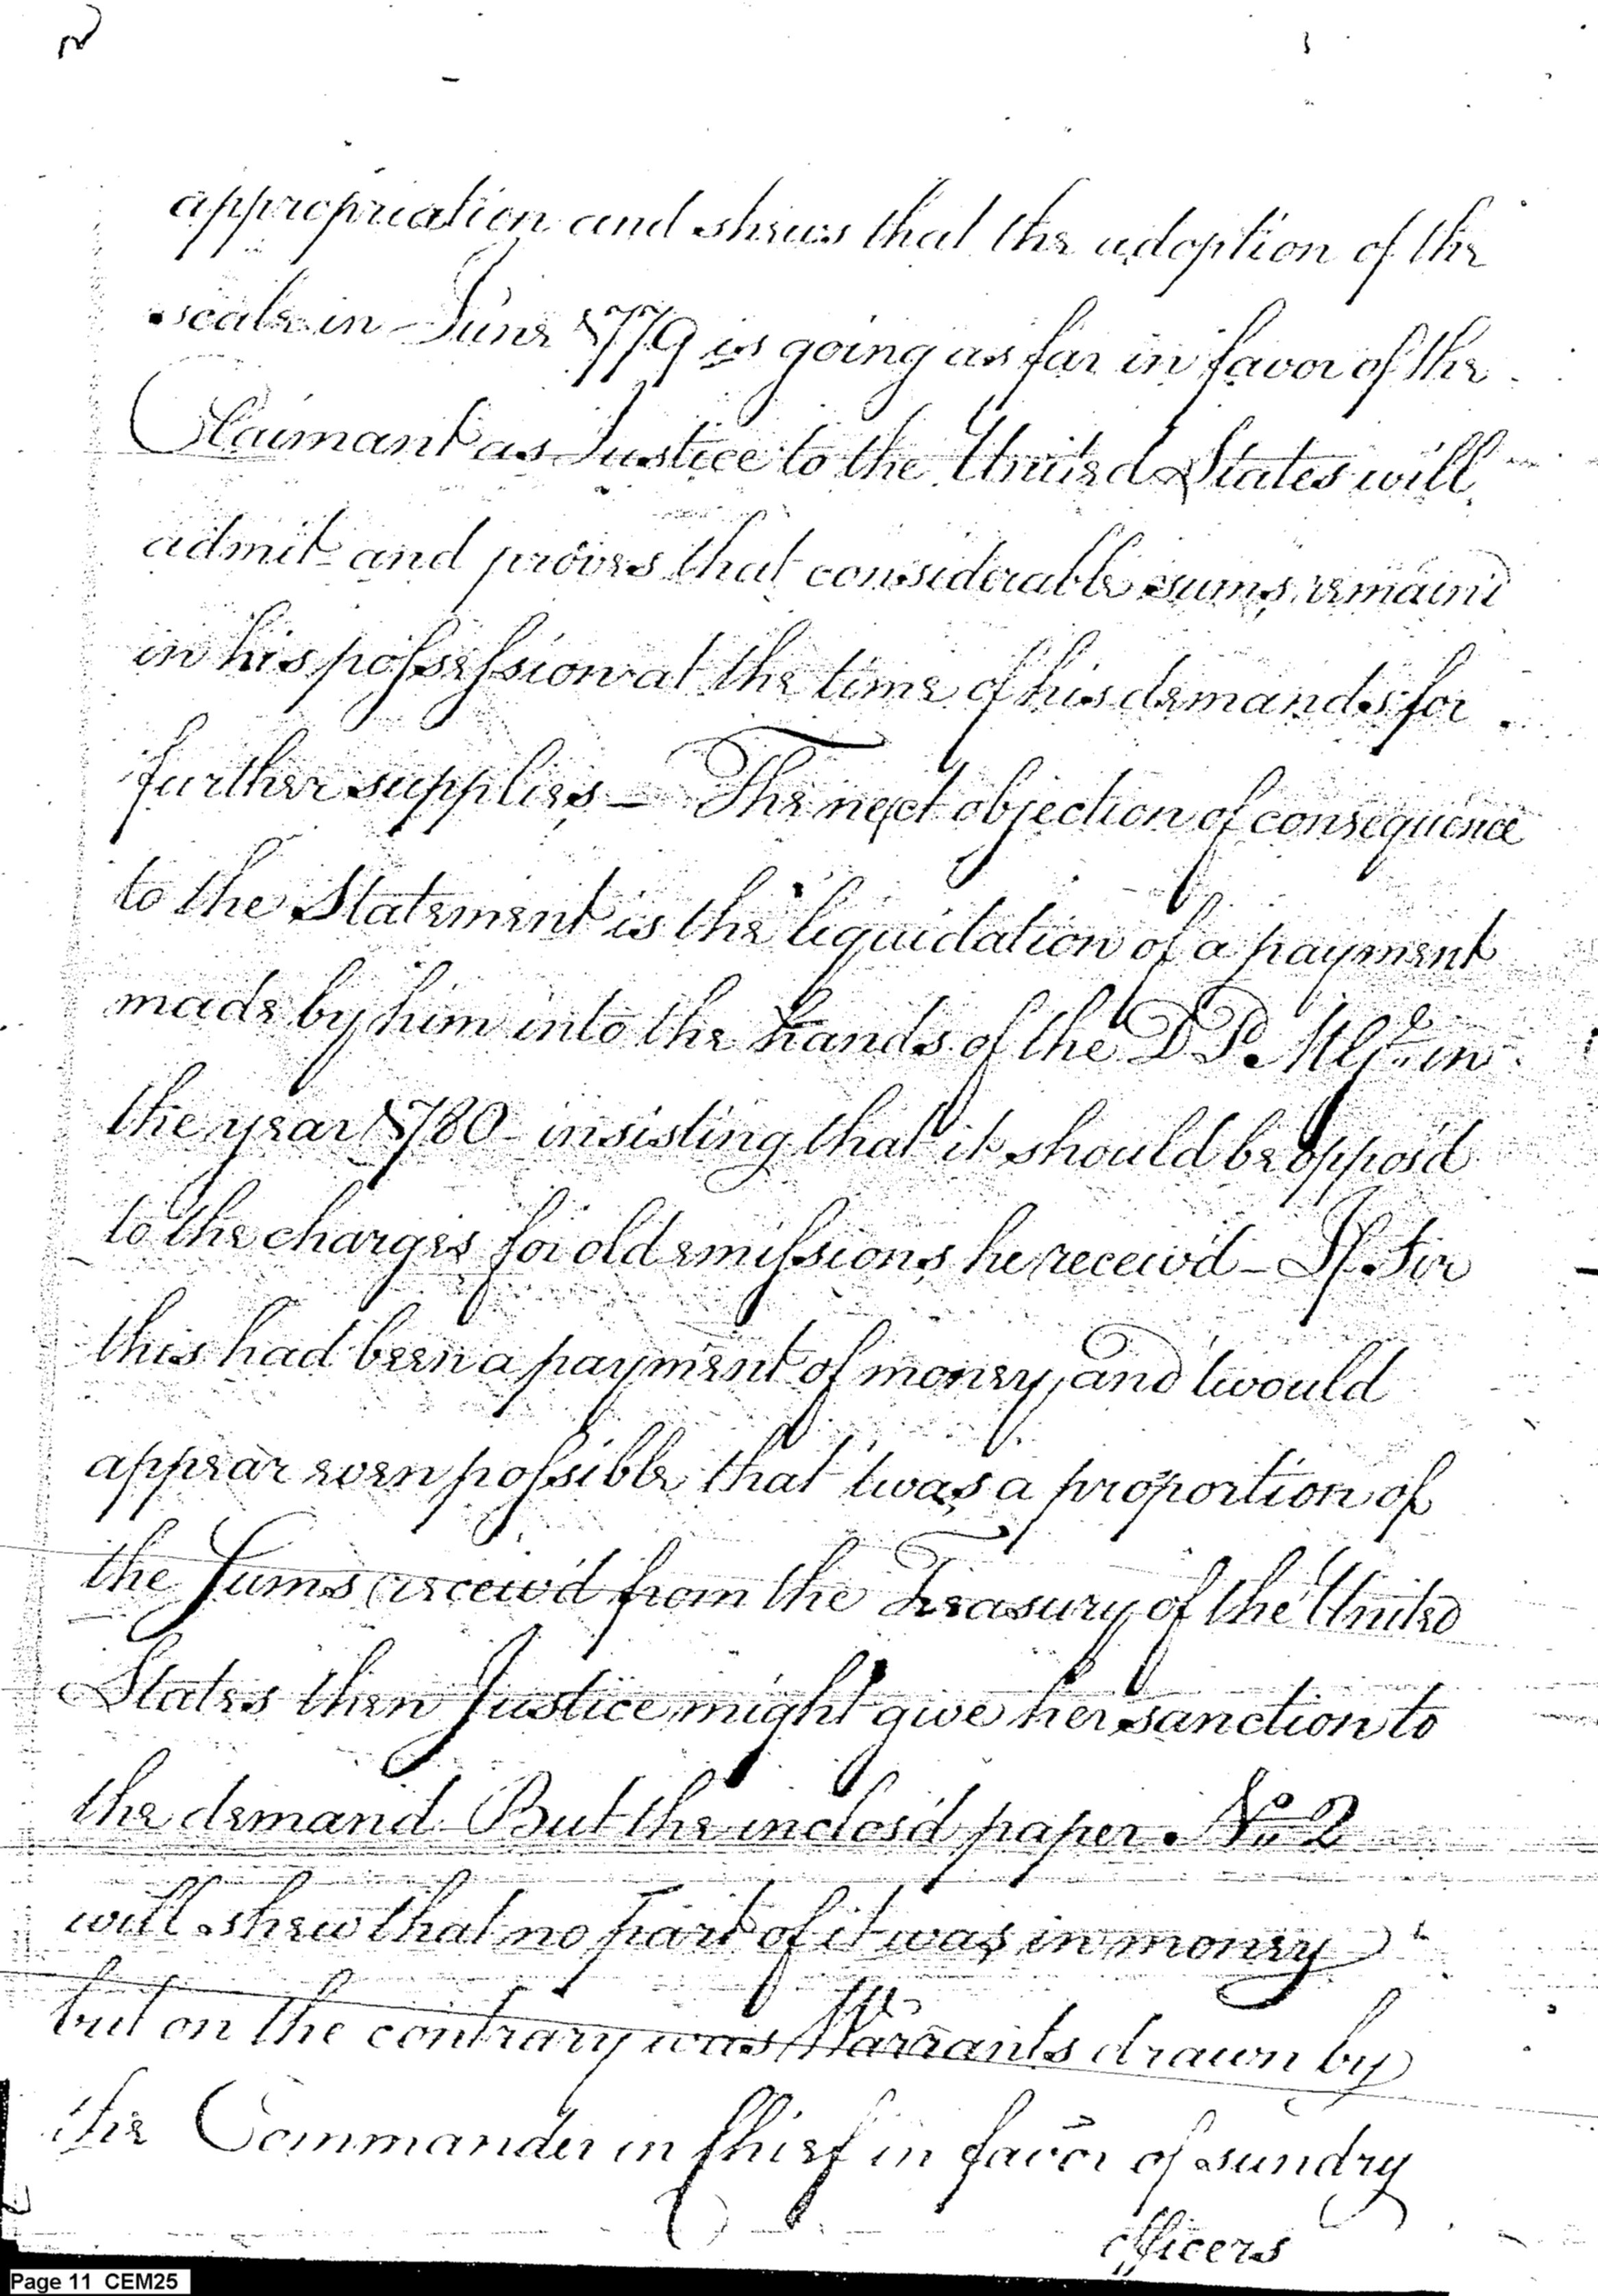 2
appropriation and shews that the adoption of the
scale in June 1779 is going as far in favor of the
Claimant as Justice to the United States will
admit and proves that considerable sums remain'd
in his possession at the time of his demands for
further supplies — The next objection of consequence
to the Statement is the liquidation of a payment
made by him into the hands of the D P. M Gl. in
the year 1780 insisting that it should be oppos'd
to the charges for old emissions he receiv'd — If Sir
this had been a payment of money, and 'twould
appear even possible that 'twas a proportion of
the Sums receiv'd from the Treasury of the United
States then Justice might give her sanction to
the demand. But the inclos'd paper No 2
will shew that no part of it was in money
but on the contrary was Warrants drawn by
the Commander in Chief in favor of sundry
officers
Page 11 CEM25